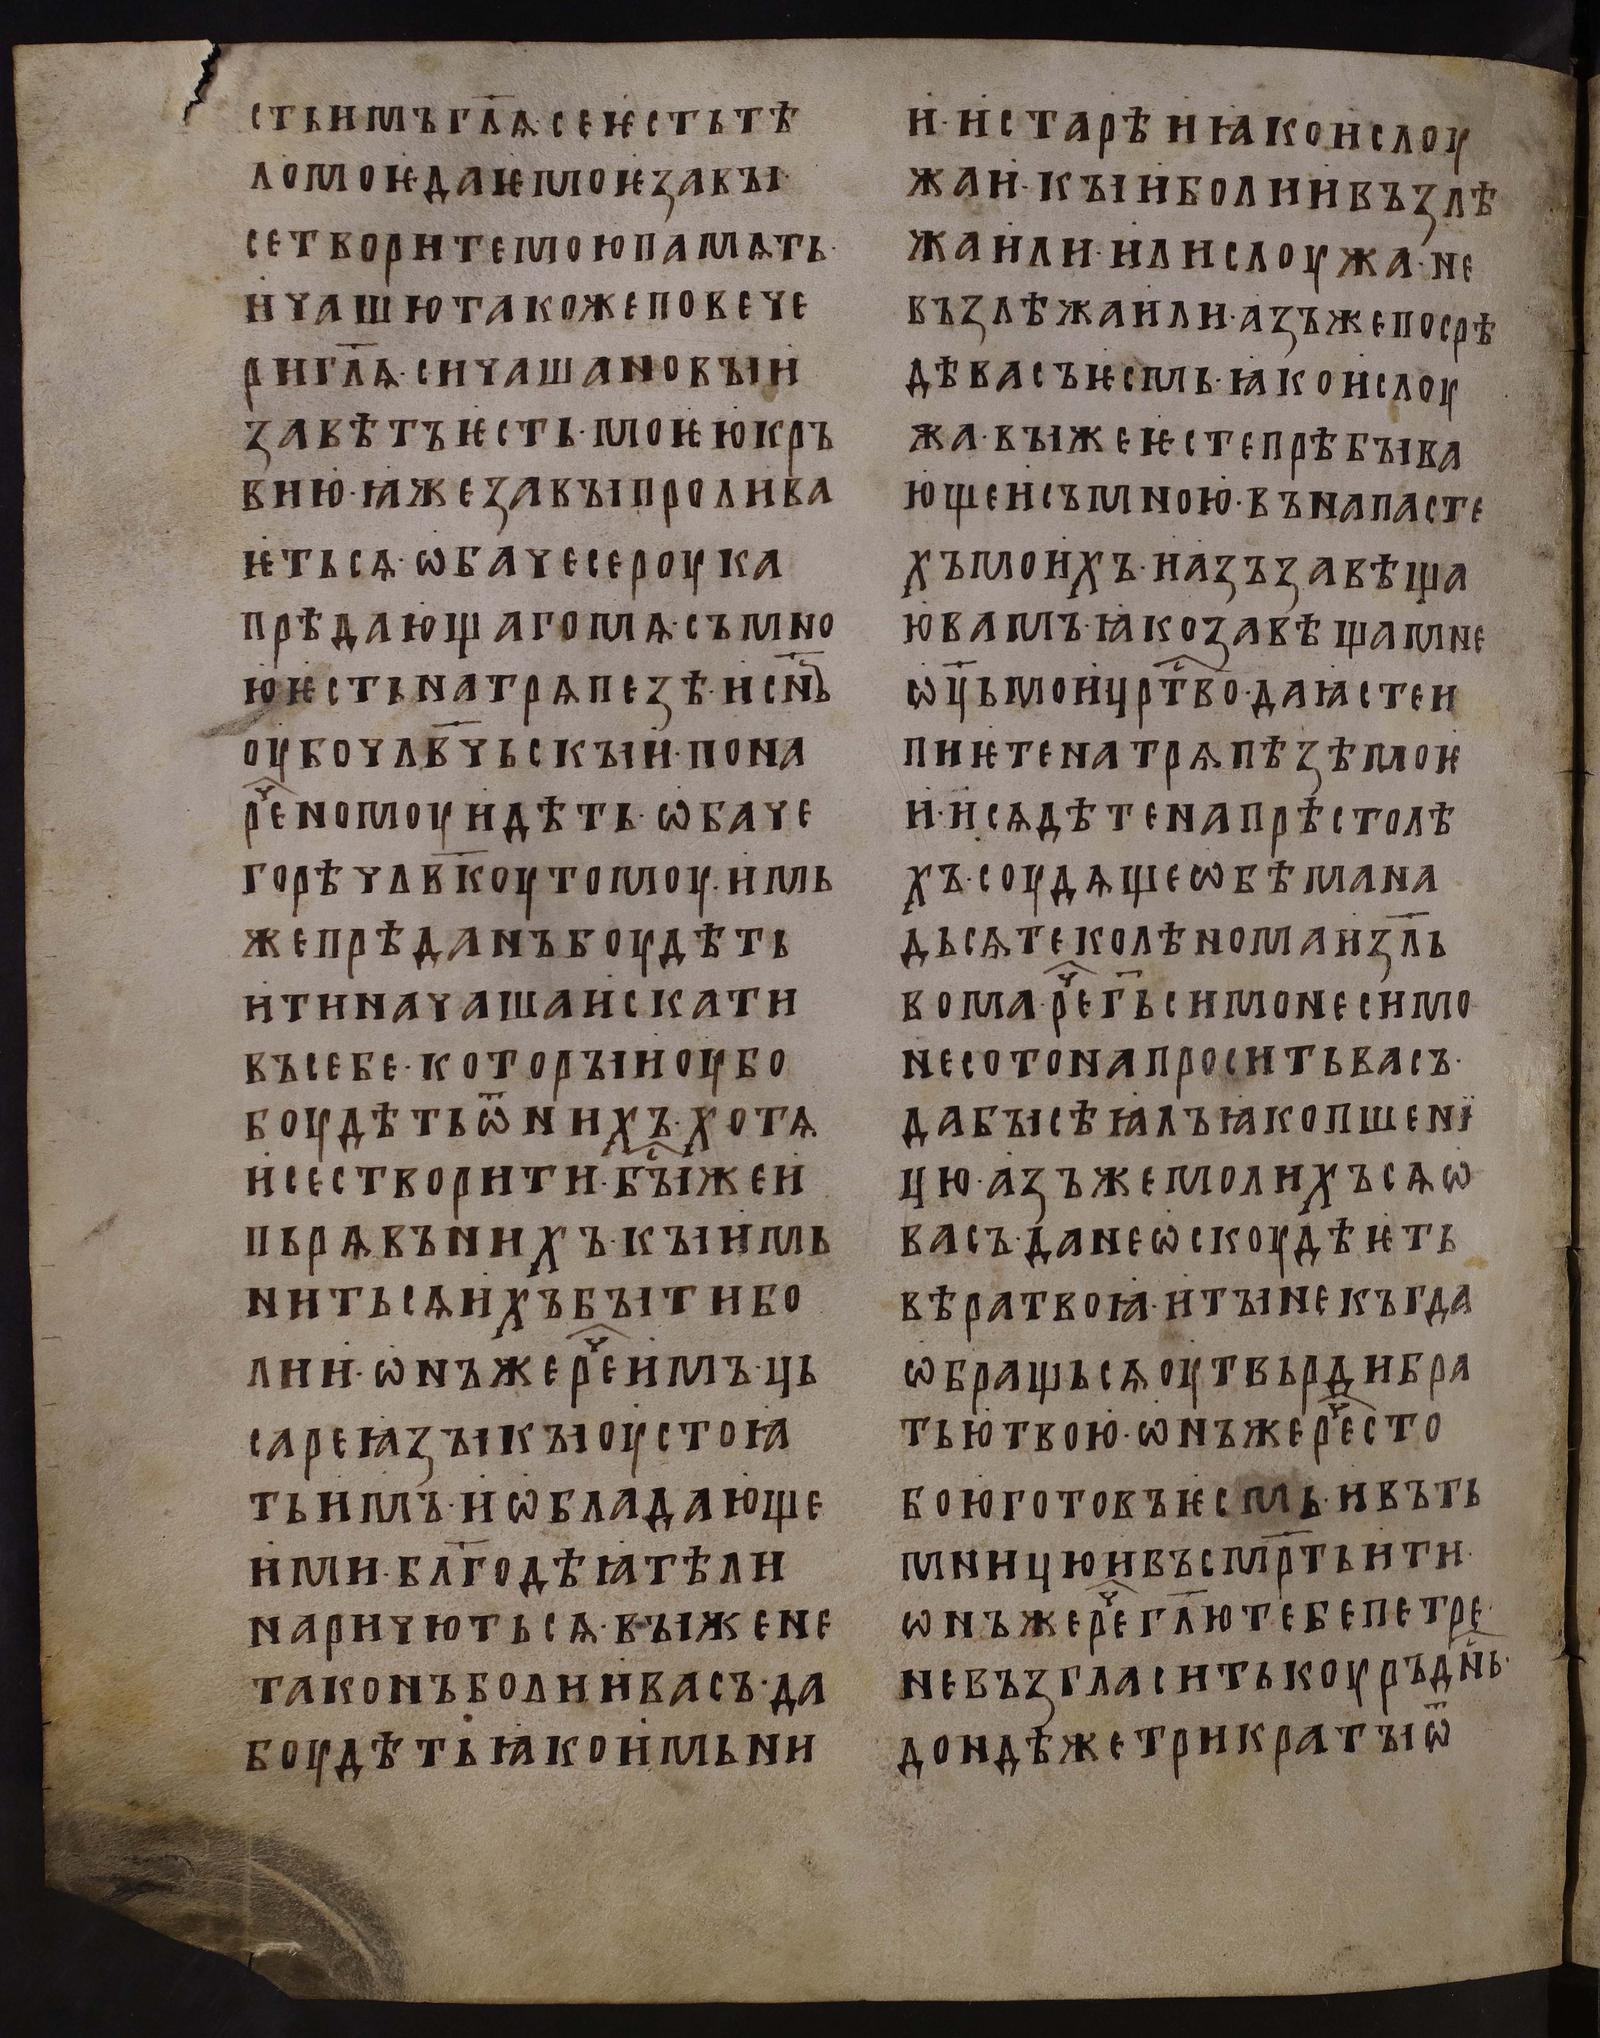 стьимъгл҃ѧ·сеѥстьтѣ
ломоѥ·даѥмоѥзавꙑ·
сетворитемоюпамѧть·
ичашютакожеповече
ригл҃ѧ·сичашановꙑи
завѣтъѥсть·моѥюкръ
вию·ꙗжезавꙑпролива
ѥтьсѧ·ѡбачесероука
прѣдающагомѧ·съмно
юѥстьнатрѧпезѣ·исн҃ъ
оубочлв҃чьскꙑи·пона
реⷱномоуидѣть·ѡбаче
горѣчлв҃коутомоу·имь
жепрѣданъбоудѣть
итиначашаискати
въсебе·которꙑиоубо
боудѣтьѿнихъ·хотѧ
исестворити·бꙑⷭжеи
пьрѧвънихъ·кꙑимь
нитьсѧихъбꙑтибо
лии·ѡнъжереⷱимъ·ць
сареꙗзꙑкꙑоустоꙗ
тьимъ·иѡбладающе
ими·бл҃годѣꙗтѣли
наричютьсѧ·вꙑжене
таконъболиивасъ·да
боудѣтьꙗкоимьни
и·истарѣиꙗкоислоу
жаи·кꙑиболиивъзлѣ
жаили·илислоужа·не
възлѣжаили·азъжепосрѣ
дѣвасъѥсмь·ꙗкоислоу
жа·вꙑжеѥстепрѣбꙑва
ющеисъмною·вънапасте
хъмоихъ·иазъзавѣща
ювамъ·ꙗкозавѣщамне
ѡц҃ьмоицрⷭ҇тво·даꙗстеи
пиѥтенатрѧпѣзѣмоѥ
и·исѧдѣтенапрѣстолѣ
хъ·соудѧщеѡбѣмана
дьсѧтеколѣномаиз҃ль
вома·реⷱг҃ьсимонесимо
несотонапроситьвасъ·
дабꙑсѣꙗлъꙗкопшенї
цю·азъжемолихъсѧѡ
васъ·данеѡскоудѣѥть
вѣратвоꙗ·итꙑнекъгда
ѡбращьсѧоутвьрдибра
тьютвою·ѡнъжереⷱсто
боюготовъѥсмь·ивътъ
мницюивъсмр҃тьити·
ѡнъжереⷱгл҃ютебепетре·
невъзгласитькоуръднⷭ҇ь·
дондѣжетрикратꙑѿ